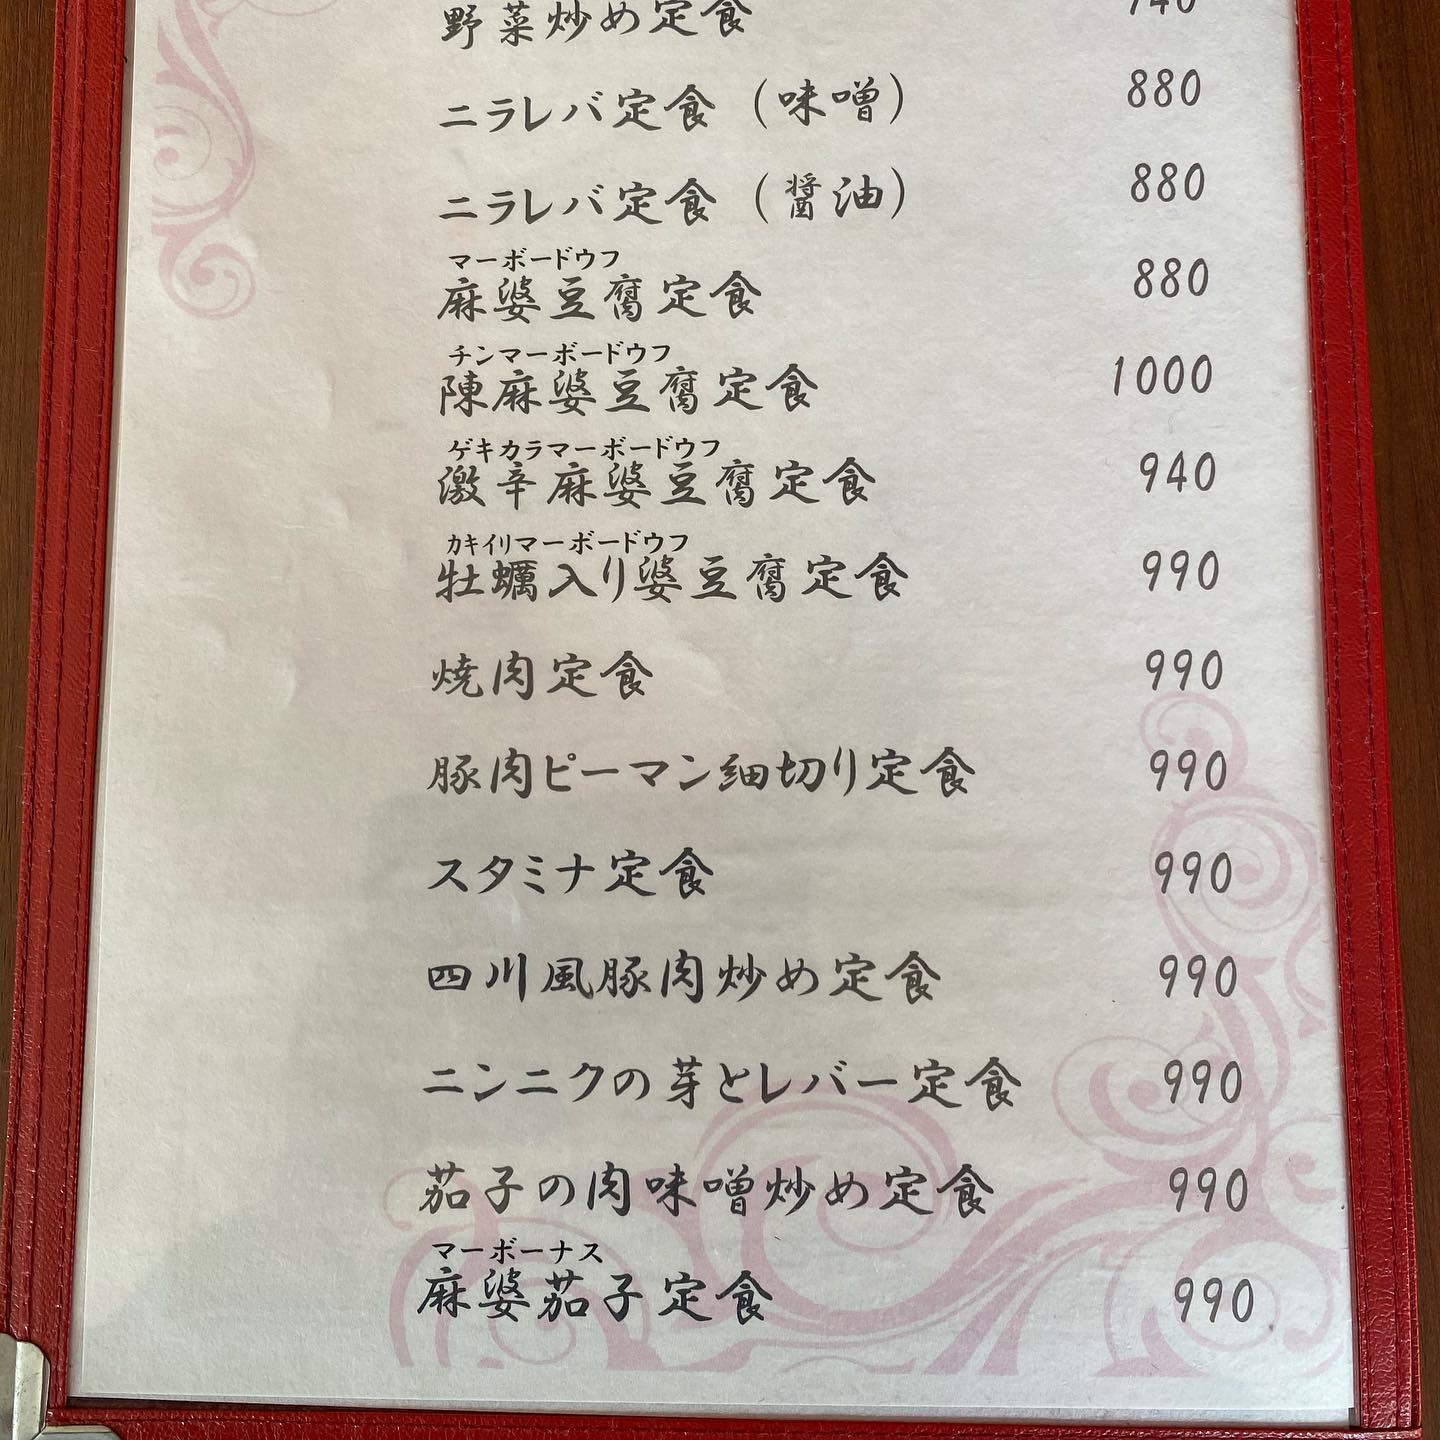 野菜炒め定食 740
ニラレバ定食（味噌） 880
ニラレバ定食（醤油） 880
マーボードウフ
麻婆豆腐定食 880
チンマーボードウフ
陳麻婆豆腐定食 1000
ゲキカラマーボードウフ
激辛麻婆豆腐定食 940
カキイリマーボードウフ
牡蠣入り婆豆腐定食 990
焼肉定食 990
豚肉ピーマン細切り定食 990
スタミナ定食 990
四川風豚肉炒め定食 990
ニンニクの芽とレバー定食 990
茄子の肉味噌炒め定食 990
マーボーナス
麻婆茄子定食 990